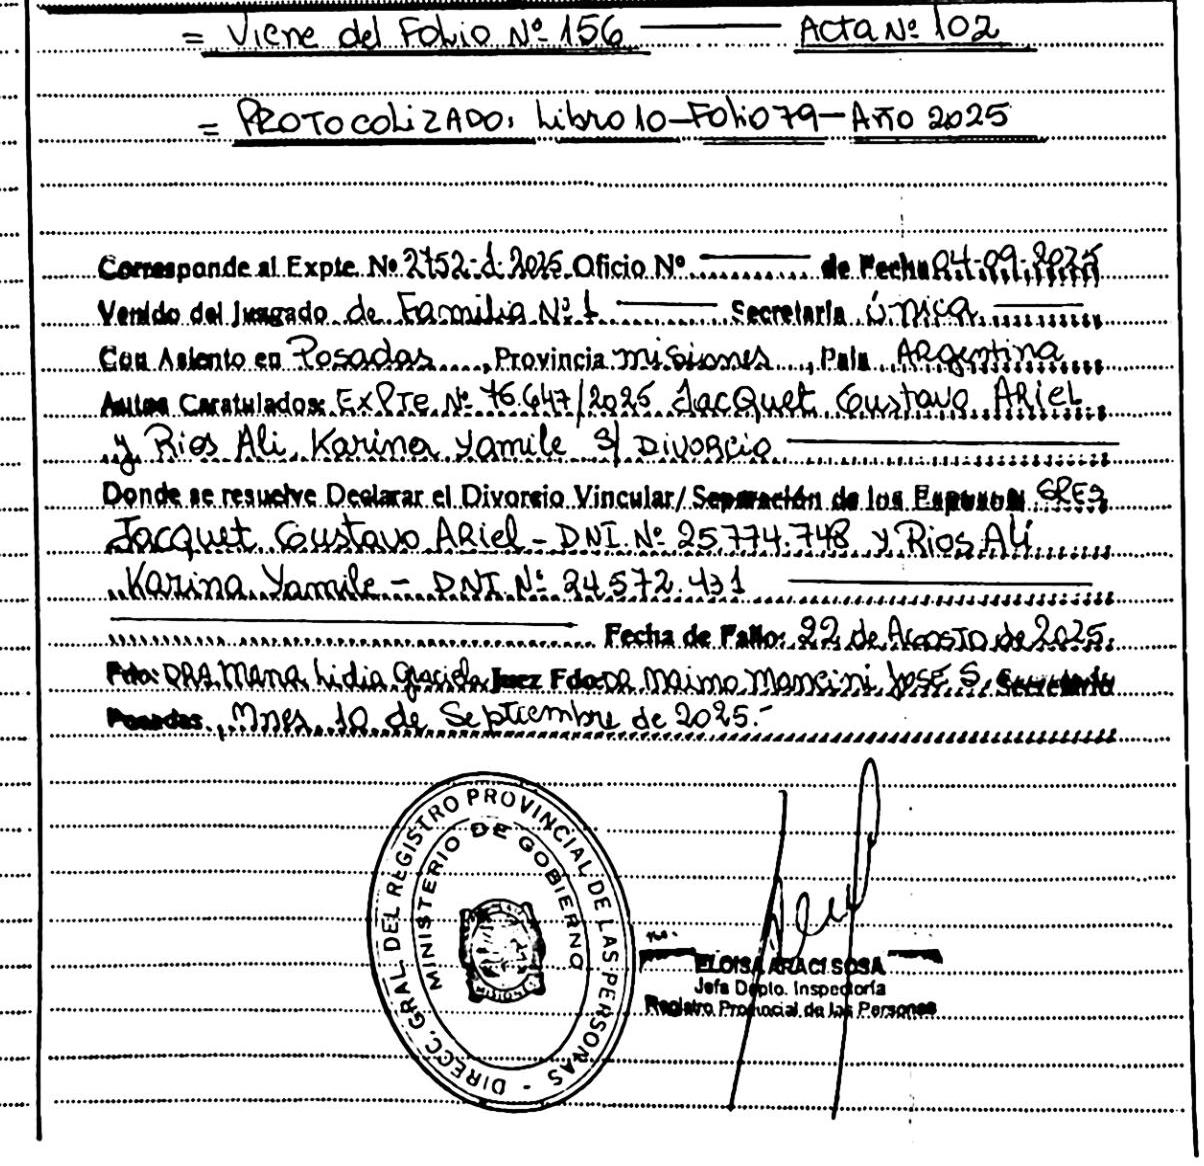 = Viene del Folio Nº 156 ——— Acta Nº 102
= PROTOCOLIZADO: Libro 10 - Folio 79 - Año 2025
Corresponde al Expte. Nº 2752-d-2025 Oficio Nº ——— de Fecha 04-09-2025
Venido del Juzgado de Familia Nº 1 ——— Secretaría única ———
Con Asiento en Posadas, Provincia misiones, País Argentina
Autos Caratulados: ExPTe Nº 76.647/2025 Jacquet Gustavo Ariel
y Rios Ali Karina Yamile S/ Divorcio ———
Donde se resuelve Declarar el Divorcio Vincular/Separación de los Esposos SRES
Jacquet Gustavo Ariel - DNI. Nº 25.774.748 y Rios Alí
Karina Yamile - DNI Nº 24.572.431 ———
——— Fecha de Fallo: 22 de Agosto de 2025.
Fdo: DRA. Lidia Graciela Juez Fdo: DR Maimo Mancini José S. Secretario
Posadas, Mnes, 10 de Septiembre de 2025.-
DIRECC. GRAL. DEL REGISTRO PROVINCIAL DE LAS PERSONAS -
MINISTERIO DE GOBIERNO
ELOISA ARACI SOSA
Jefa Dpto. Inspectoría
Registro Provincial de las Personas